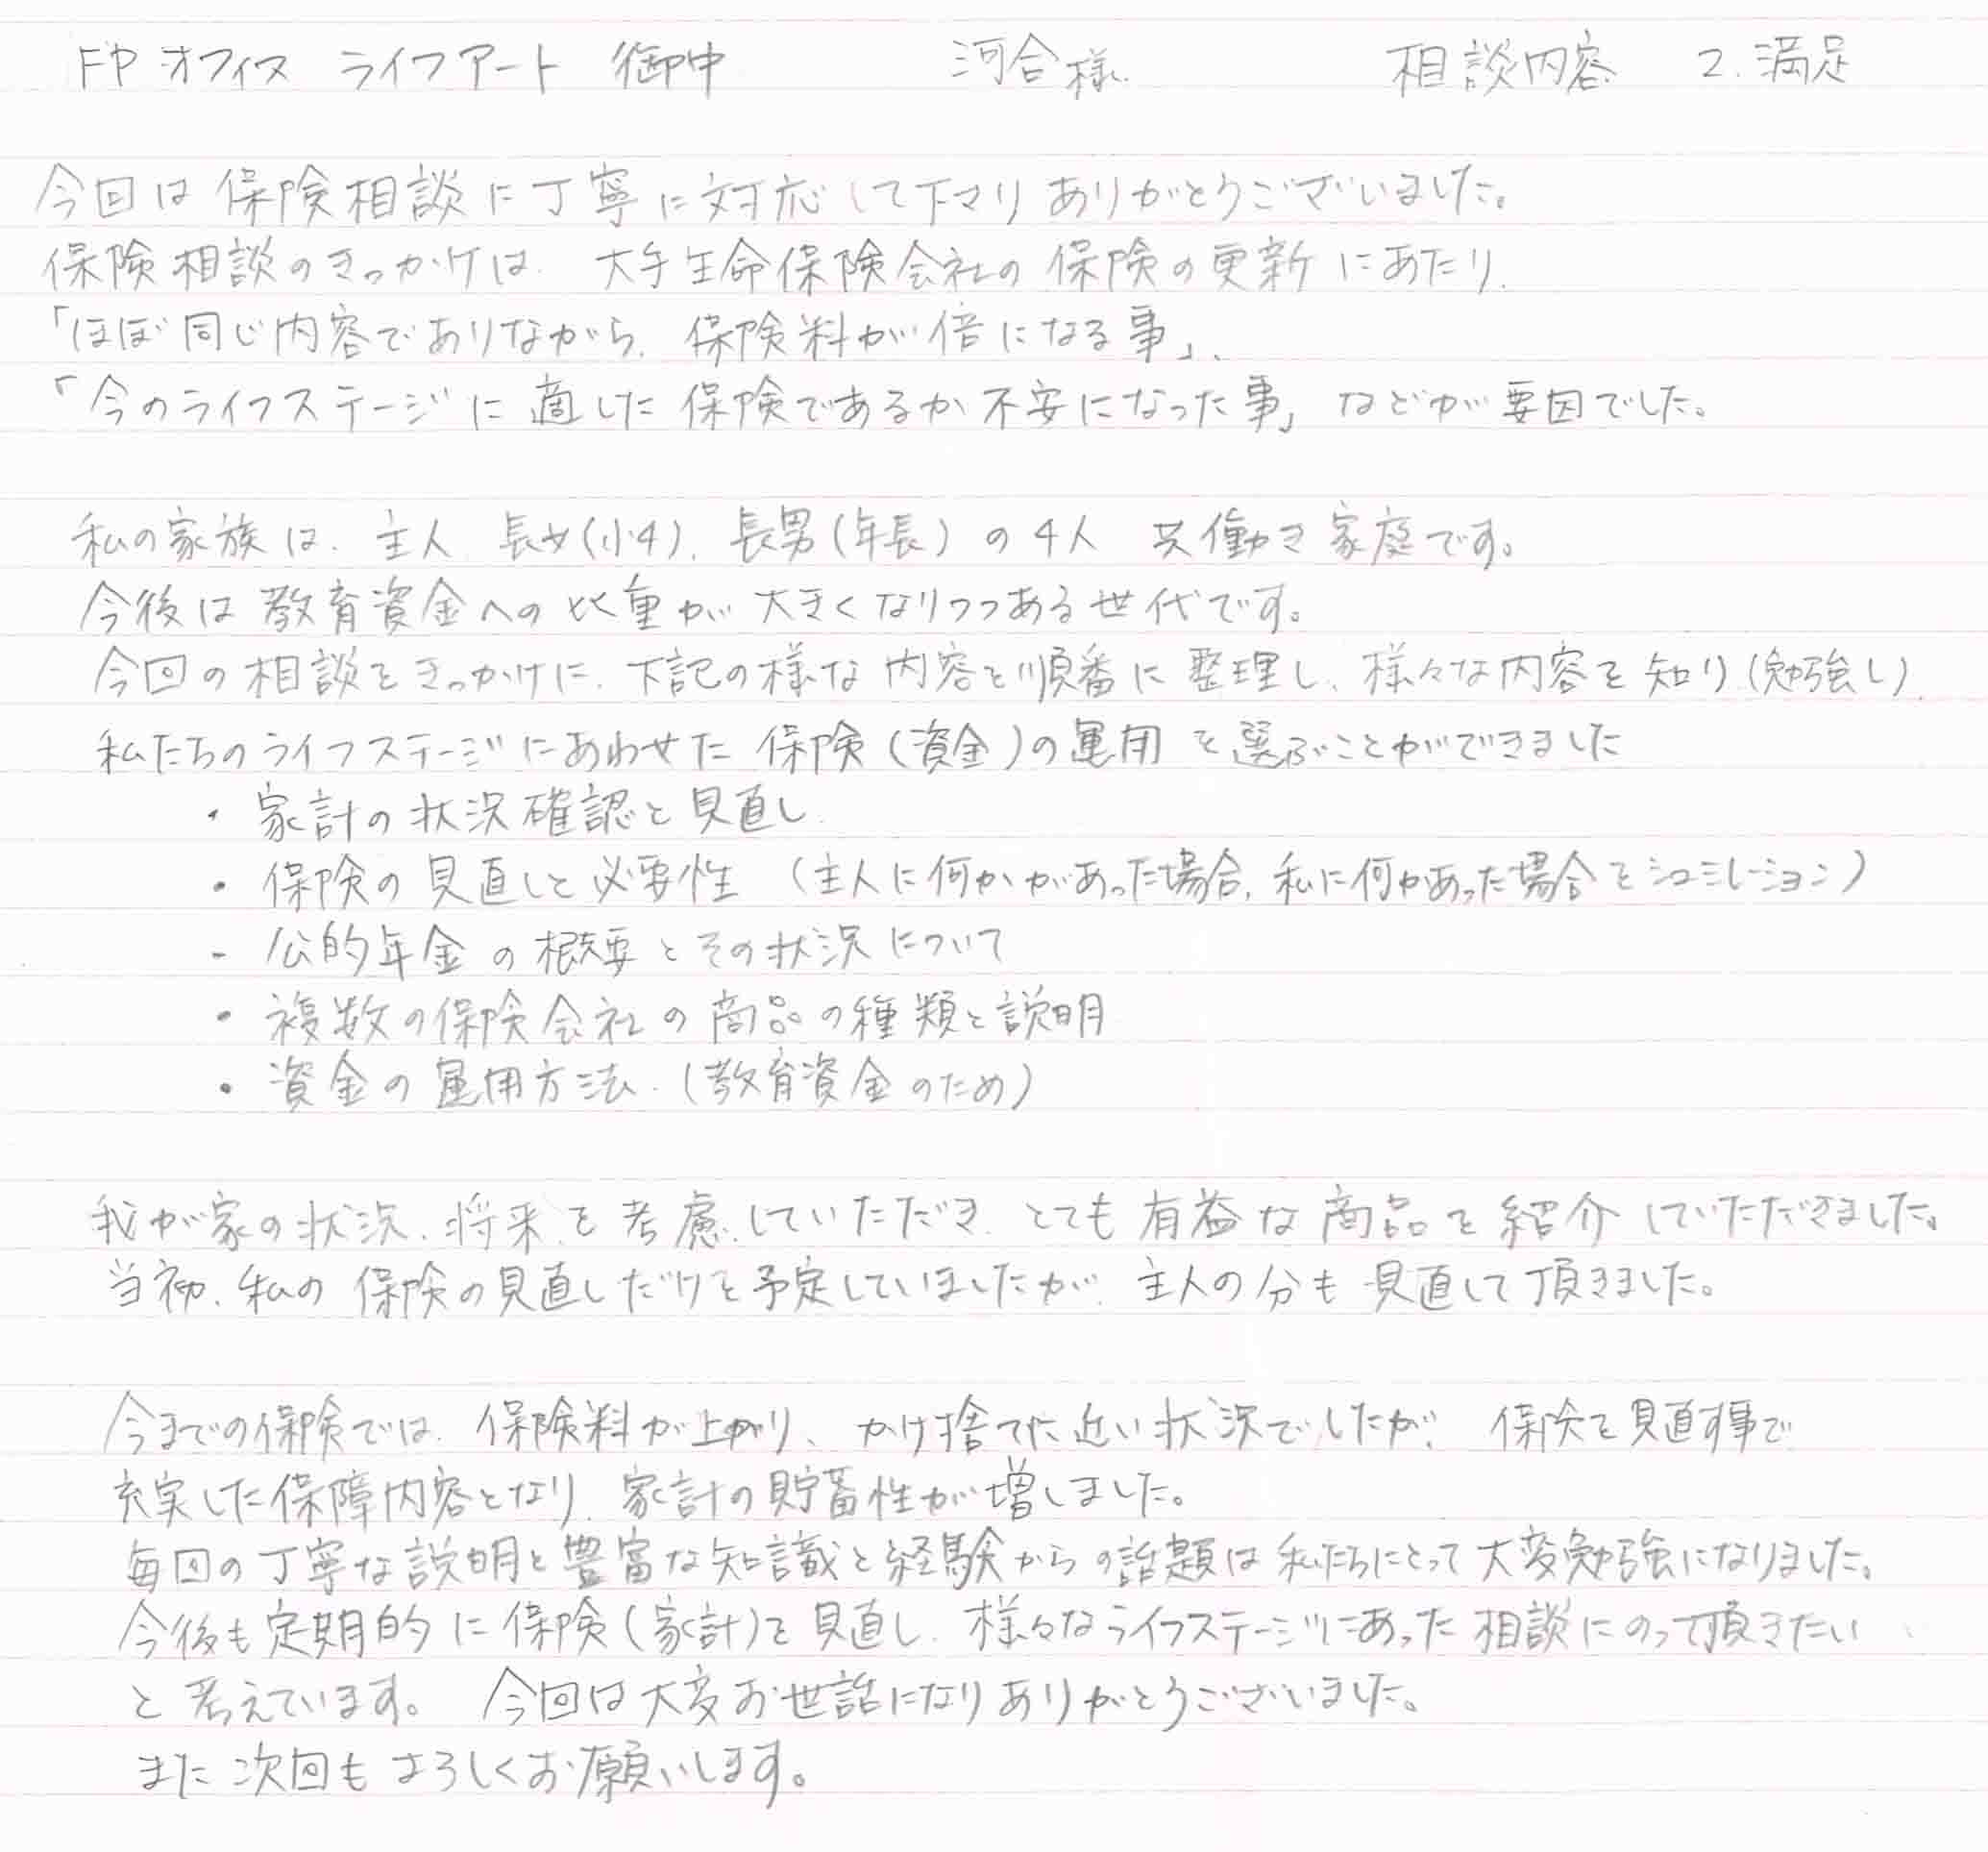 FP オフィス ライフアート 御中 河合様 相談内容 2.満足
今回は保険相談に丁寧に対応して下さりありがとうございました。
保険相談のきっかけは、大手生命保険会社の保険の更新にあたり、
「ほぼ同じ内容でありながら、保険料が倍になる事」、
「今のライフステージに適した保険であるか不安になった事」などが要因でした。
私の家族は、主人、長女(小4)、長男(年長)の4人 共働き家庭です。
今後は教育資金への比重が大きくなりつつある世代です。
今回の相談をきっかけに、下記の様な内容を順番に整理し、様々な内容を知り(勉強し)、
私たちのライフステージにあわせた保険(資金)の運用を選ぶことができました
・家計の状況確認と見直し
・保険の見直しと必要性 (主人に何かがあった場合、私に何かあった場合をシュミレーション)
・公的年金の概要とその状況について
・複数の保険会社の商品の種類と説明
・資金の運用方法 (教育資金のため)
我が家の状況、将来を考慮していただき、とても有益な商品を紹介していただきました。
当初、私の保険の見直しだけを予定していましたが、主人の分も見直して頂きました。
今までの保険では、保険料が上がり、かけ捨てに近い状況でしたが、保険を見直す事で
充実した保障内容となり、家計の貯蓄性が増しました。
毎回の丁寧な説明と豊富な知識と経験からの話題は私たちにとって大変勉強になりました。
今後も定期的に保険(家計)を見直し、様々なライフステージにあった相談にのって頂きたい
と考えています。 今回は大変お世話になりありがとうございました。
また次回もよろしくお願いします。